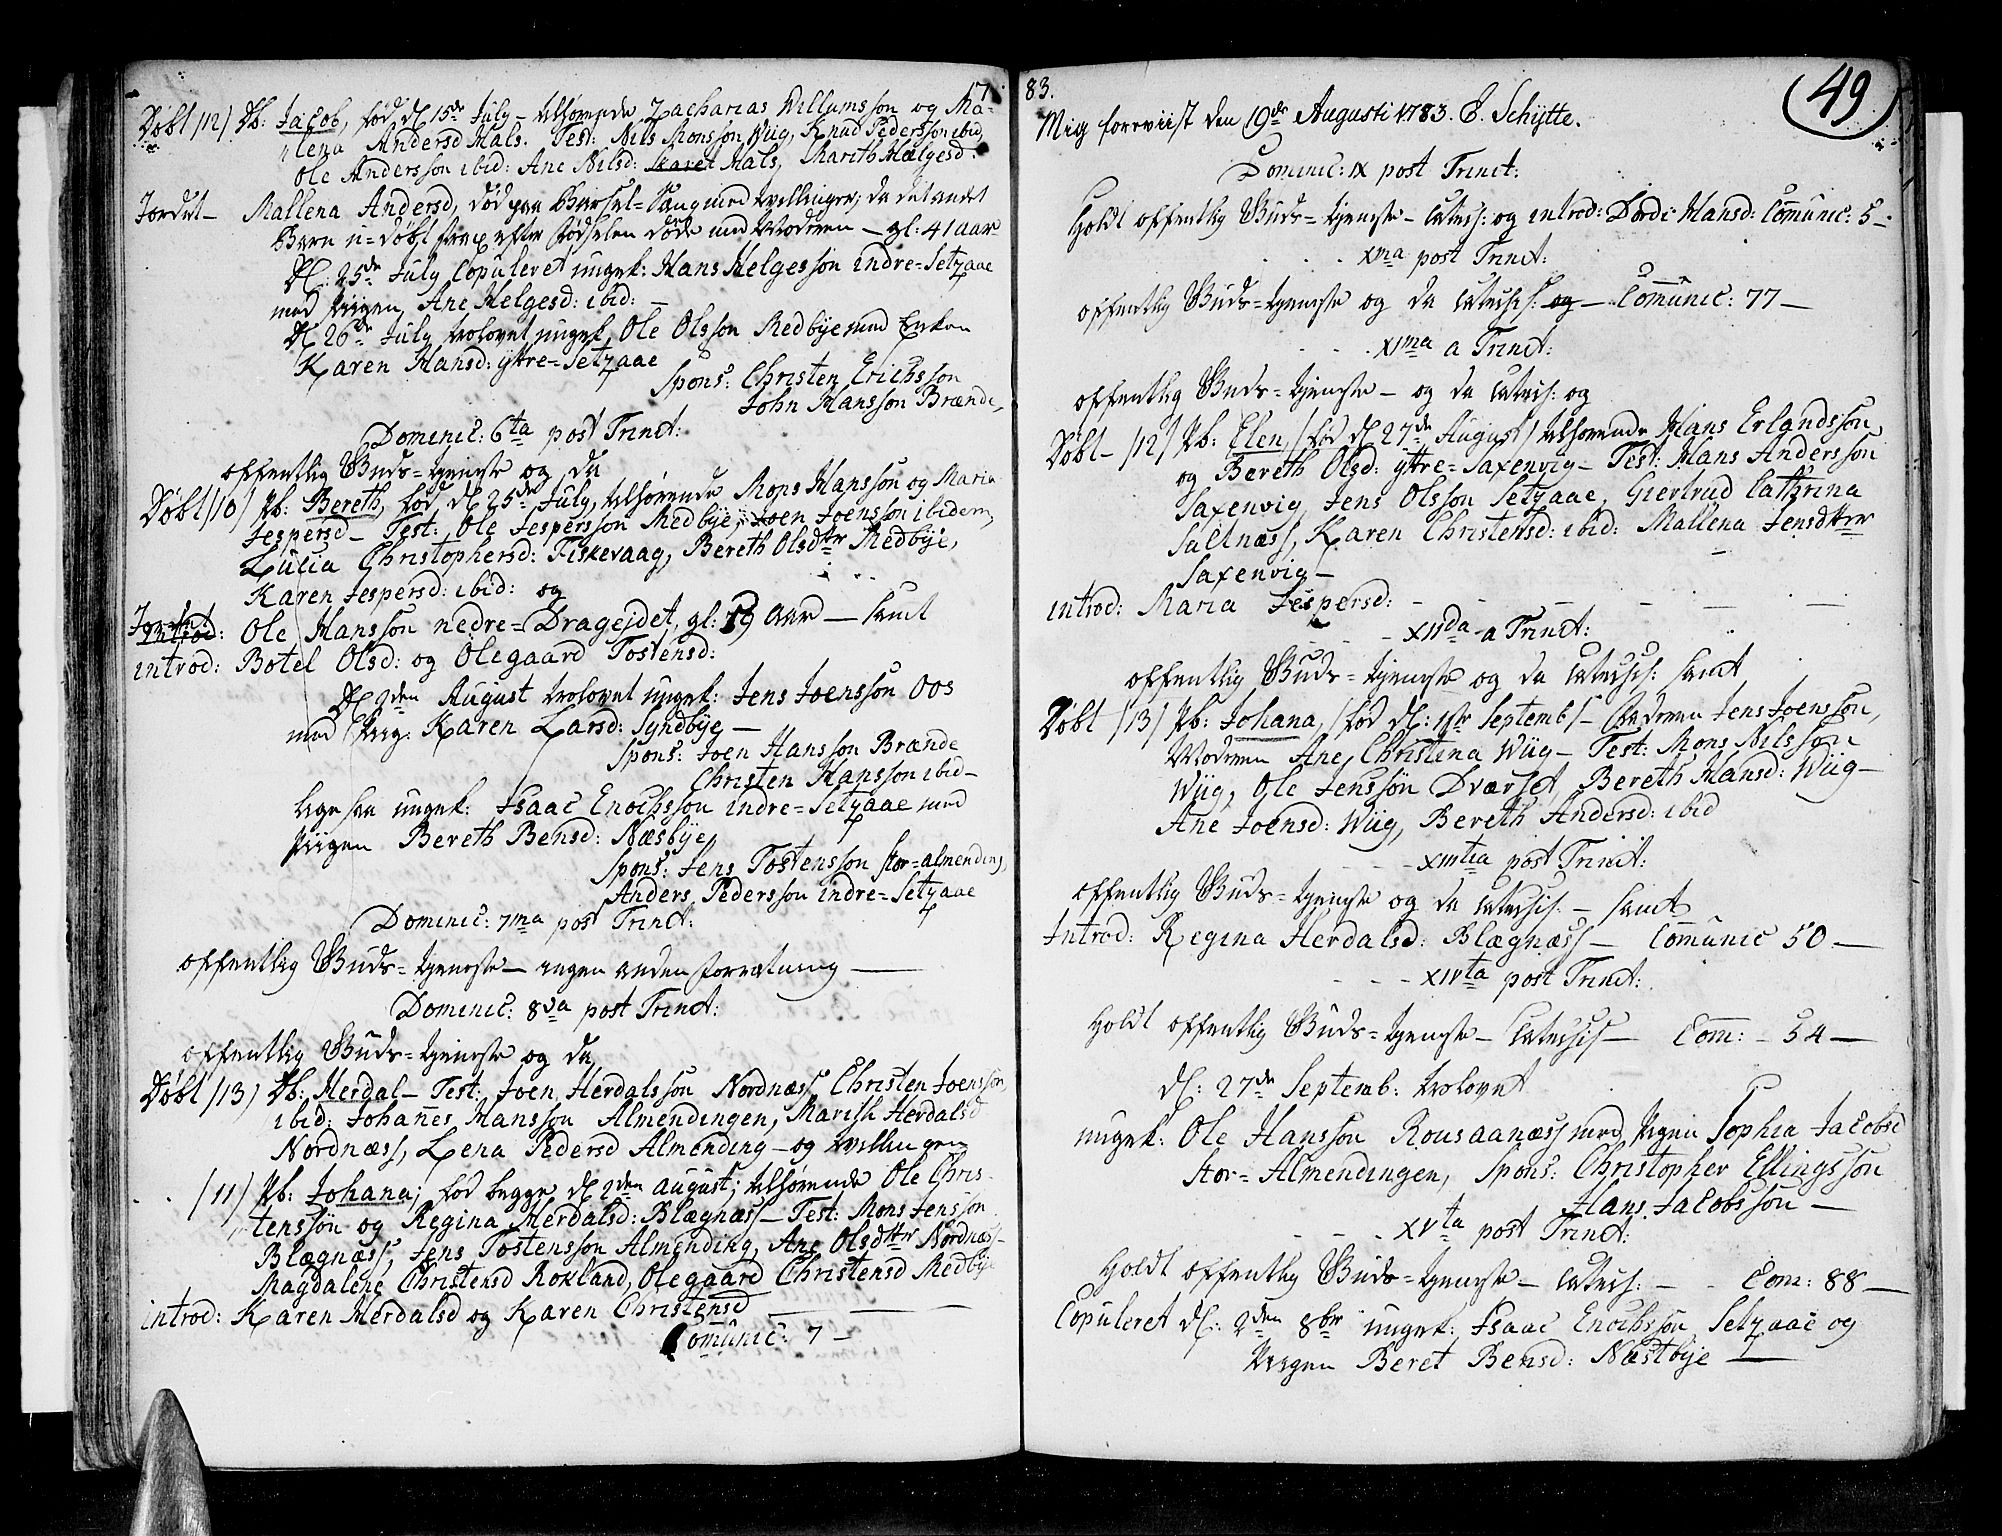 17
Døbt /12/ Db: Jacob, fød d. 15de July - tilhørende Zacharias Villumsson og Ma-
lena Andersd Hals. Test: Nils Monsson Wiig, Knud Pedersson ibid,
Ole Andersson ibid: Ane Nilsd: Skaret Hals, Marith Helgesd:
Jordet - Mallena Andersd, død paa Barsel-Sæng med tvillinger, da det andet
Barn u-døbt strax efter fødselen døde med Moderen - gl: 41 aar
d. 25de July Copuleret ungek: Hans Helgesson indre-Setzaae
med Piigen Ane Helgesd: ibid: -
d. 26de July trolovet ungek. Ole Olsson Medbye med Enken
Karen Hansd: yttre-Setzaae
Spons: Christen Erichsson
John Hansson Brænde,
Dominic: 6ta post Trinit:
offentlig Guds-tjeneste og da
Døbt /10/ Pb: Bereth, fød d. 25de July, tilhørende Mons Hansson og Maria
Jespersd - Test: Ole Jespersson Medbye, Joen Joensson ibidem,
Lucia Christophersd: Fiskevaag, Bereth Olsdttr Medbye,
Karen Jespersd: ibid: og
Jordet
introd: Ole Hansson nedre-Dragejdet, gl: 79 aar - samt
introd: Botel Olsd: og Olegaard Tostensd:
d. 2den August trolovet ungek: Jens Joensson Oos
med Piig: Karen Larsd: Syndbye -
Spons: Joen Hansson Brænde
Christen Hansson ibid -
lige saa ungek: Isaac Enochsson indre-Setzaae med
Piigen Bereth Bensd: Næsbye,
Spons: Jens Tostensson Stor-almending,
Anders Pedersson indre-Setzaae
Dominic: 7ma post Trinit:
offentlig Guds-tjeneste - ingen anden forretning -
Dominic: 8va post Trinit:
offentlig Guds-tjeneste og da
Døbt /13/ Db: Herdal - Test: Joen Herdalsson Nordnæss, Christen Joensson
ibid: Johannes Hansson Almendingen, Marith Herdalsd
Nordnæss, Lena Pedersd Almending - og tvillingen
/11/ Pb: Johana, fød begge d. 2den august; tilhørende Ole Chris-
tenssøn og Regina Herdalsd: Blægnæss - Test: Mons Jensson
Blægnæss, Jens Tostensson Almending, Ane Olsdttr Nordnæss -
Magdalene Christensd Rokland, Olegaard Christensd Medbye
introd: Karen Herdalsd og Karen Christensd
Comunic: 7 -
83.
49
Mig foreviist den 19de Augusti 1783. E. Schytte.
Dominic: IX post Trinit:
Holdt offentlig Guds-tjeneste - Catech: og introd: Dordi Hansd: Comunic: 5 -
Xma post Trinit:
offentlig Guds-tjeneste og da Catechis: og - Comunic: 77 -
XIma a Trinit:
offentlig Guds-tjeneste - og da Catech: og
Døbt - /12/ Pb: Elen, /fød d. 27de August/ tilhørende Hans Erlandsson
og Bereth Olsd: yttre-Saxenvig - Test: Hans Andersson
Saxenvig, Jens Olsson Setzaae, Giertrud Cathrina
Saltnæss, Karen Christensd: ibid: Mallena Jensdttr
Saxenvig -
introd: Maria Jespersd:
XIIda a Trinit:
offentlig Guds-tjeneste og da Catechis: samt
Døbt /13/ Pb: Johana, /fød d: 1ste Septemb/ - Faderen Jens Joensson,
Moderen Ane Christina Wiig - Test: Mons Nilsson
Wiig, Ole Jenssøn Dværset, Bereth Hansd: Wiig -
Ane Joensd: Wiig, Bereth Andersd: ibid
XIIItia post Trinit:
offentlig Guds-tjeneste og da Catechis: - samt
Introd: Regina Herdalsd: Blægnæss - Comunic 50 -
XIVta post Trinit:
Holdt offentlig Guds-tjeneste - Catechis - Com: - 54 -
d: 27de Septemb: trolovet
ungek: Ole Hansson Rousaanæss med Pigen Sophia Jacobsd
Stor-Almendingen, Spons: Christopher Ellingsson
Hans Jacobsson -
XVta post Trinit:
Holdt offentlig Guds-tjeneste - Catech: - Com: 88 -
Copuleret d: 2den 8br ungek: Isaac Enochsson Setzaae og
Piigen Beret Bensd: Næstbye -